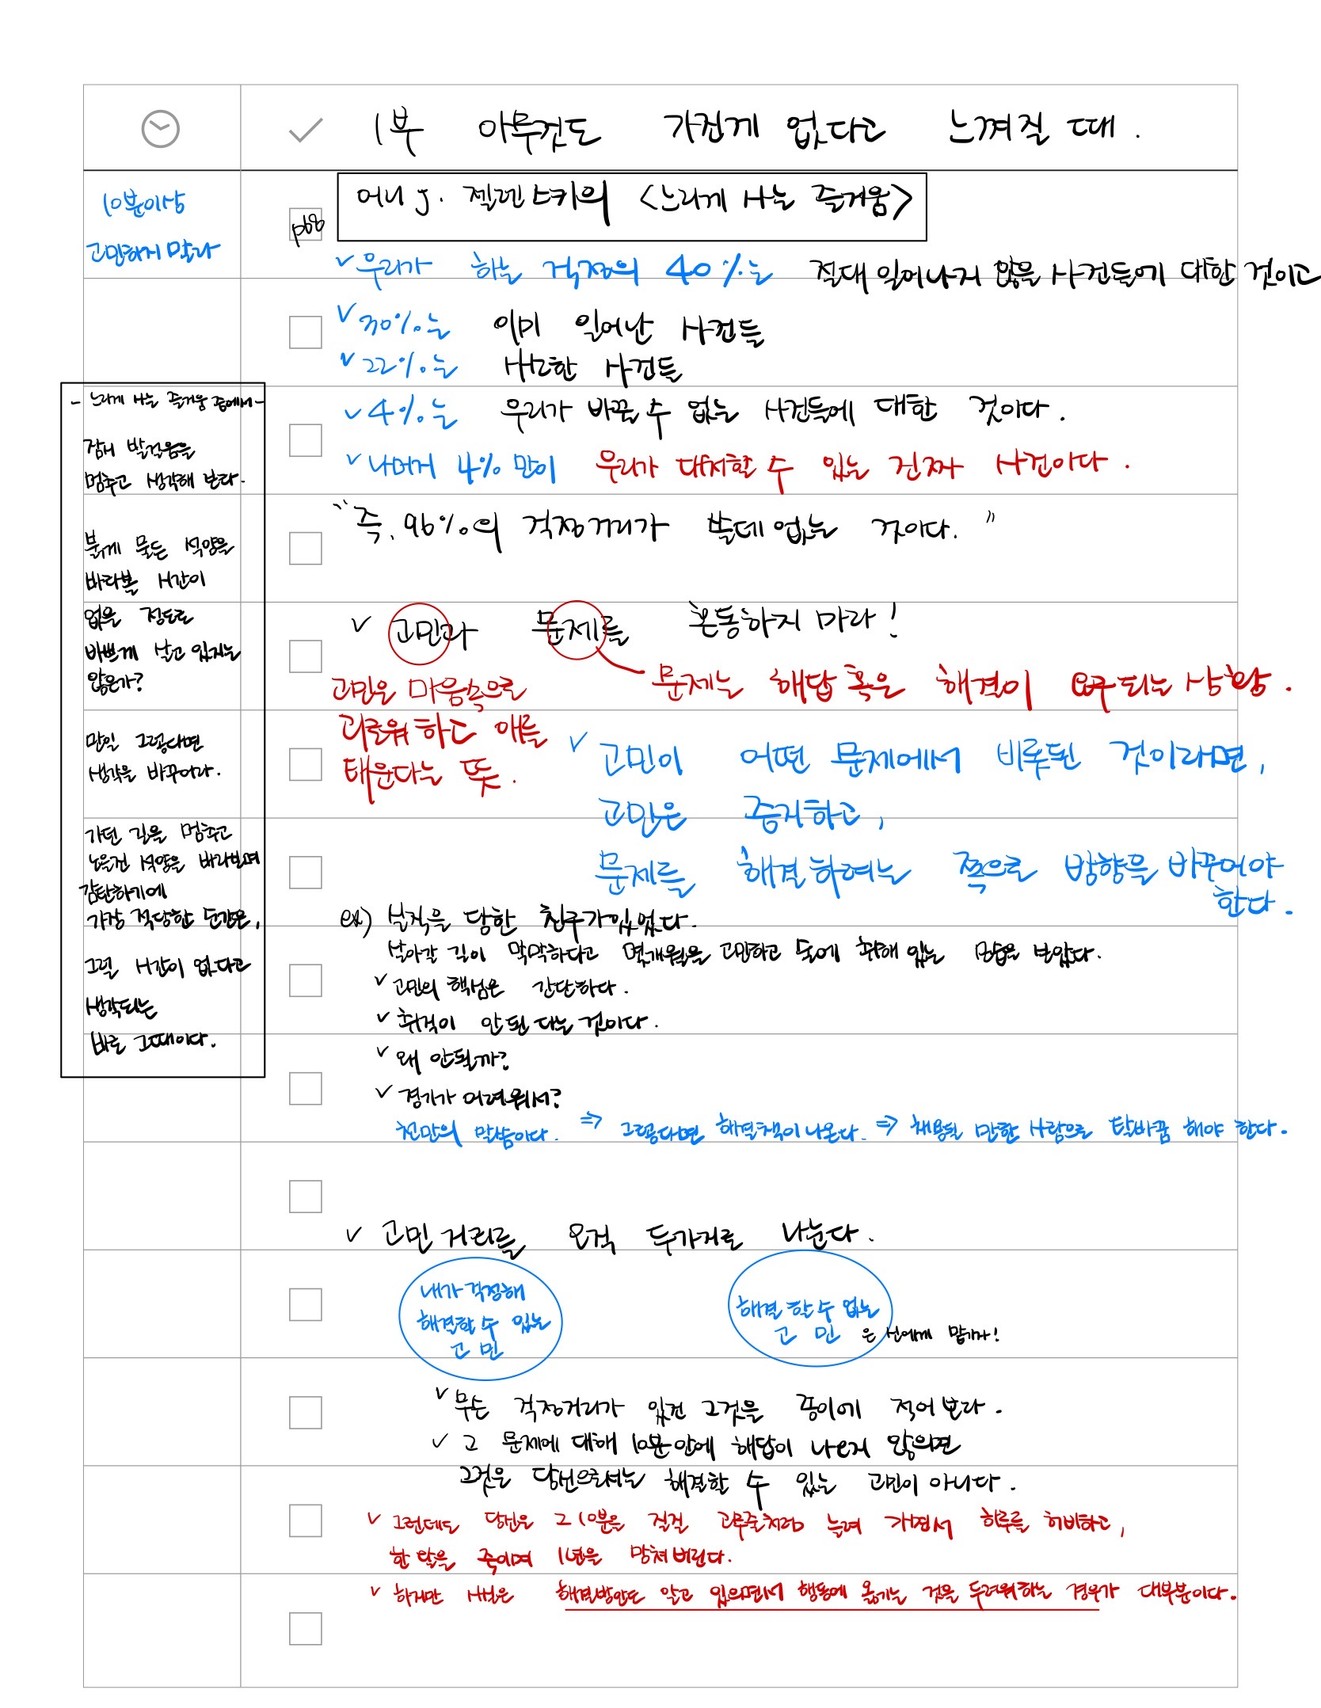 1부 아무것도 가진게 없다고 느껴질 때.
10분이상
고민하지 말라
p68
어니 J. 젤린스키의 <느리게 사는 즐거움>
✓우리가 하는 걱정의 40%는 절대 일어나지 않을 사건들에 대한 것이고
✓30%는 이미 일어난 사건들
✓22%는 사소한 사건들
✓4%는 우리가 바꿀 수 없는 사건들에 대한 것이다.
✓나머지 4%만이 우리가 대처할 수 있는 진짜 사건이다.
"즉, 96%의 걱정거리가 쓸데없는 것이다."
- 느리게 사는 즐거움 중에서 -
잠시 발걸음을
멈추고 생각해 본다.
붉게 물든 석양을
바라볼 시간이
없을 정도로
바쁘게 살고 있지는
않은가?
만일 그렇다면
생각을 바꾸어라.
가던 길을 멈추고
노을진 석양을 바라보며
감탄하기에
가장 적당한 순간은,
그럴 시간이 없다고
생각되는
바로 그때이다.
✓ 고민과 문제를 혼동하지 마라!
문제는 해답 혹은 해결이 요구되는 상황.
고민은 마음속으로
괴로워하고 애를
태운다는 뜻.
✓ 고민이 어떤 문제에서 비롯된 것이라면,
고민은 중지하고,
문제를 해결하려는 쪽으로 방향을 바꾸어야
한다.
ex) 실직을 당한 친구가있었다.
살아갈 길이 막막하다고 몇개월을 고민하고 술에 취해 있는 모습을 보았다.
✓고민의 핵심은 간단하다.
✓취직이 안된다는 것이다.
✓왜 안될까?
✓경기가 어려워서?
천만의 말씀이다. ⇒ 그렇다면 해결책이 나온다. ⇒ 채용될 만한 사람으로 탈바꿈 해야 한다.
✓ 고민 거리를 오직 두가지로 나눈다.
내가 걱정해
해결할 수 있는
고민
해결 할 수 없는
고민 은 신에게 맡겨라!
✓무슨 걱정거리가 있건 그것을 종이에 적어 보라.
✓ 그 문제에 대해 10분안에 해답이 나오지 않으면
그것은 당신으로서는 해결할 수 있는 고민이 아니다.
✓ 그런데도 당신은 그 10분을 질질 고무줄처럼 늘려 가면서 하루를 허비하고,
한 달을 죽이며 1년을 망쳐버린다.
✓ 하지만 사실은 해결방안도 알고 있으면서 행동에 옮기는 것을 두려워하는 경우가 대부분이다.